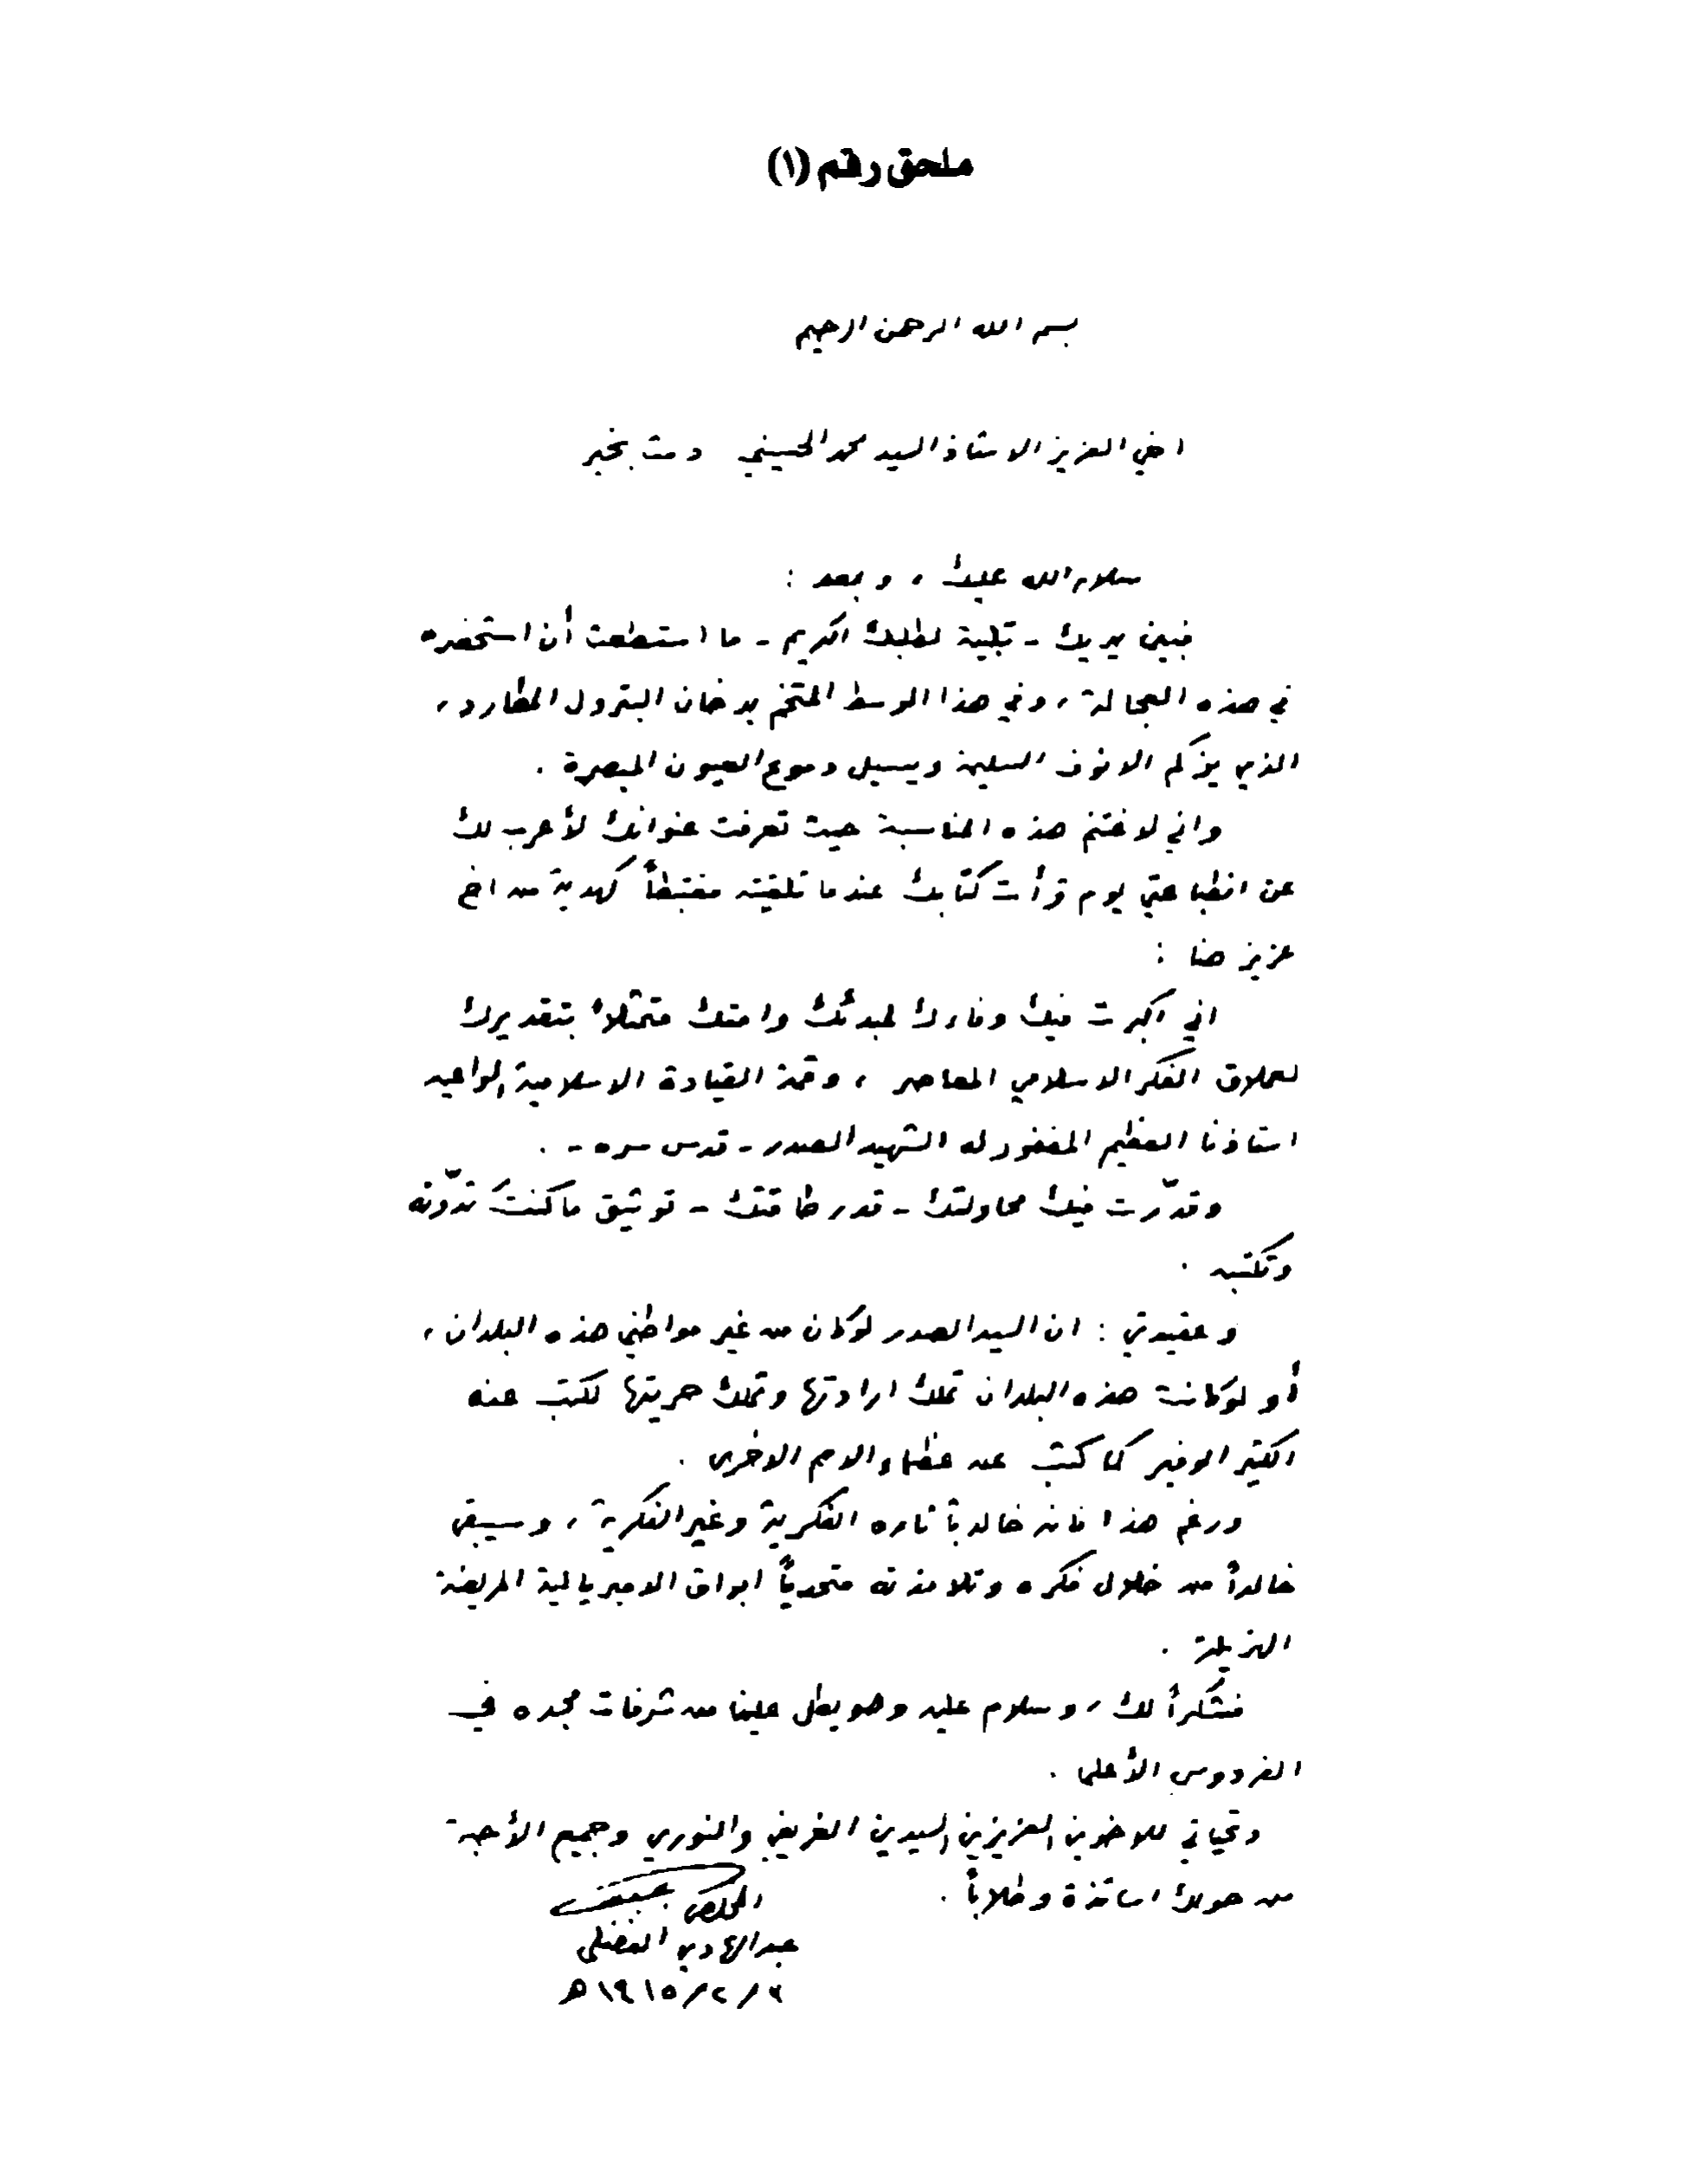 ملحق رقم (١)
بسم الله الرحمن الرحيم
اخي العزيز الاستاذ السيد محمد الحسيني دمت بخير
سلام الله عليك ، وبعد :
فبين يديك - تلبية لطلبك الكريم - ما استطعت أن استحضره
في هذه العجالة ، وفي هذا الوسط المتخم بدخان البترول المطارد ،
الذي يزكم الانوف السليمة ويسيل دموع العيون المبصرة .
واني لاغتنم هذه المناسبة حيث تعرفت عنوانك لأعرب لك
عن انطباعتي يوم قرأت كتابك عندما تلقيته مغتبطاً كهدية من اخ
عزيز هنا :
اني اكبرت فيك وفاءك لمبدئك وامتك متمثلاً بتقديرك
لعملاق الفكر الاسلامي المعاصر ، وقمة القيادة الاسلامية الواعية
استاذنا العظيم المغفور له الشهيد الصدر - قدس سره - .
وقدّرت فيك محاولتك - قدر طاقتك - توثيق ما كنتَ تدوّنه
وتكتبه .
وعقيدتي : ان السيد الصدر لو كان من غير مواطني هذه البلدان ،
أو لو كانت هذه البلدان تملك ارادتها وتملك حريتها لكتب عنه
الكثير الوفير كما كتب عن عظماء الامم الاخرى .
ورغم هذا فانه خالد بآثاره الفكرية وغير الفكرية ، وسيبقى
خالداً من خلال فكره وتلامذته متحدياً ابواق الامبريالية المريضة
الهزيلة .
فشكراً لك ، وسلام عليه وهو يطل علينا من شرفات مجده في
الفردوس الأعلى .
وتحياتي للاخوين العزيزين السيدين الغريفي والنوري وجميع الأحبة
من حولك اساتذة وطلاباً .
المخلص
عبدالهادي الفضلي
٦ / ٢ / ١٤١٥ هـ